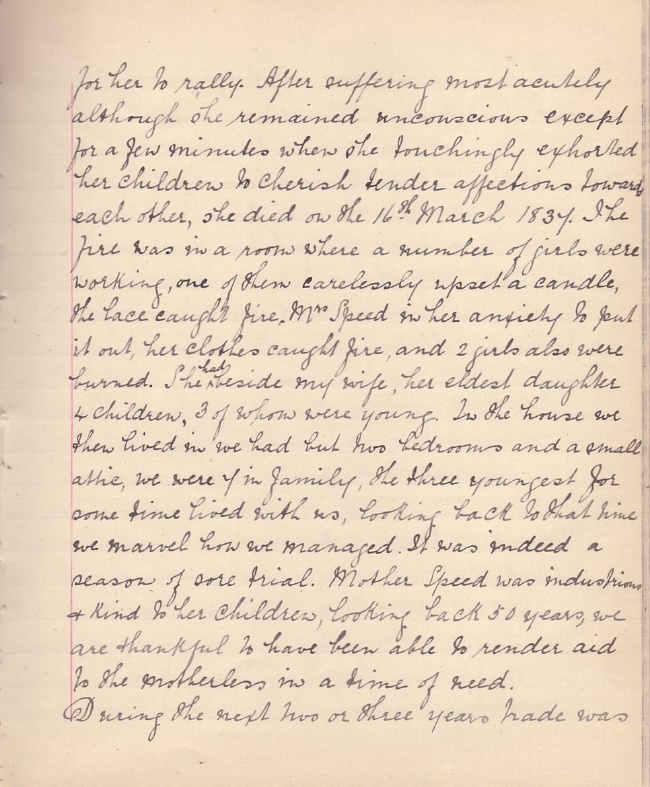 for her to rally. After suffering most acutely
although she remained unconscious except
for a few minutes when she touchingly exhorted
her children to cherish tender affections toward
each other, she died on the 16th March 1837. The
fire was in a room where a number of girls were
working, one of them carelessly upset a candle,
the lace caught fire. Mrs Speed in her anxiety to put
it out, her clothes caught fire, and 2 girls also were
burned. She had beside my wife, her eldest daughter
4 children, 3 of whom were young. In the house we
then lived in we had but two bedrooms and a small
attic, we were 7 in family, the three youngest for
some time lived with us, looking back to that time
we marvel how we managed. It was indeed a
season of sore trial. Mother Speed was industrious
& kind to her children, looking back 50 years, we
are thankful to have been able to render aid
to the motherless in a time of need.
During the next two or three years trade was